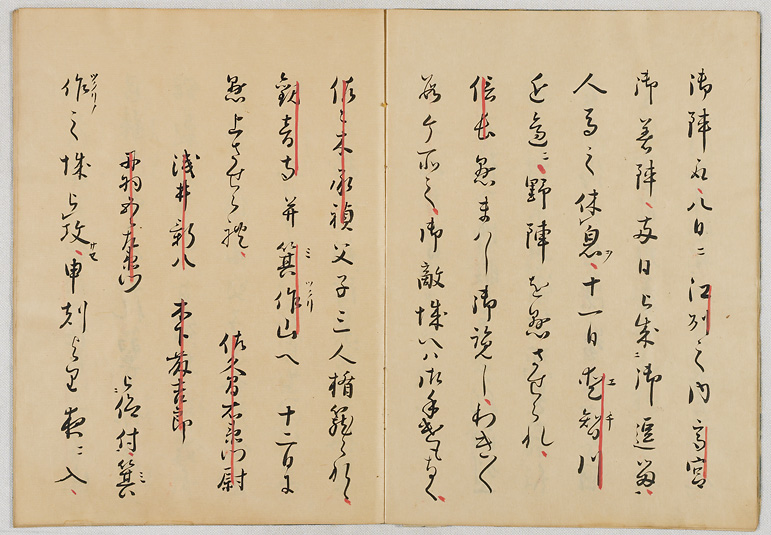 御陣取、八日ニ江州之内高宮
御着陣、両日被成ニ御逗留、
人馬之休息、十一日愛智川
近辺ニ、野陣を懸させられ、
信長懸まハし御覧し、わき〱
数ケ所之、御敵城へハ御手遣もなく、
佐々木承禎父子三人楯籠られ、
観音寺并箕作山へ 十二日に
懸上させられ、 佐久間右衛門尉
浅井新八 木下藤吉郎
丹羽五郎左衛門 被仰付、箕
作之城被攻、申剋より夜ニ入、